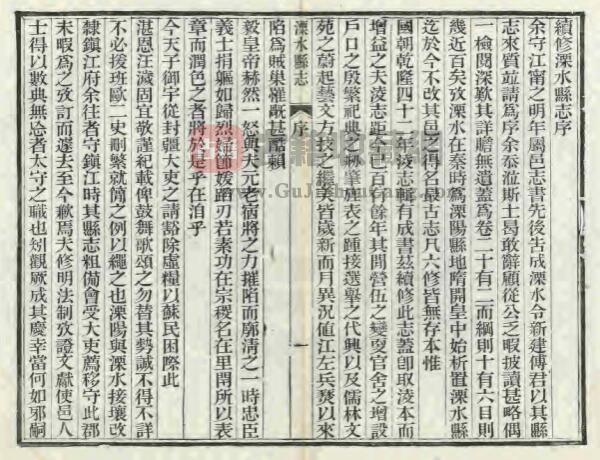 續修溧水縣志序
余守江甯之明年屬邑志書先後告成溧水令新建傅君以其縣
志來質並請爲序余忝涖斯土曷敢辭顧從公之暇披讀甚略偶
一檢閱深歎其詳贍無遺蓋爲卷二十有二而綱則十有六目則
幾近百矣攷溧水在秦時爲溧陽縣地隋開皇中始析置溧水縣
迄於今不改其邑之得名最古志凡六修皆無存本惟
國朝乾隆四十二年淩志輯有成書茲續修此志蓋卽取淩本而
增益之夫淩志距今已百有餘年其間營伍之變更官舍之增設
戶口之殷繁祀典之肇旌表之踵接選舉之代興以及儒林文
苑之蔚起藝文方技之繼美皆歲新而月異況値江左兵燹以來
溧水縣志
序
一
陷爲賊巢罹旤甚酷賴
毅皇帝赫然一怒與大元老宿將之力摧陷而廓淸之一時忠臣
義士捐軀如歸烈婦媛蹈刃若素功在宗稷名在里閈所以表
章而潤色之者將於是乎在洎乎
今天子御宇從封疆大吏之請豁除虛糧以蘇民困際此
湛恩汪濊固宜敬謹紀載俾鼓舞歌頌之勿替其勢誠不得不詳
不必援班歐二史刪繁就簡之例以繩之也溧陽與溧水接壤改
隸鎭江府余往者守鎭江時其縣志粗備會受大吏薦移守此郡
未暇爲之攷訂而遽去至今歉焉夫修明法制攷證文獻使邑人
士得以數典無忘者太守之職也矧觀厥成其慶幸當何如邪嗣
www.GuJi